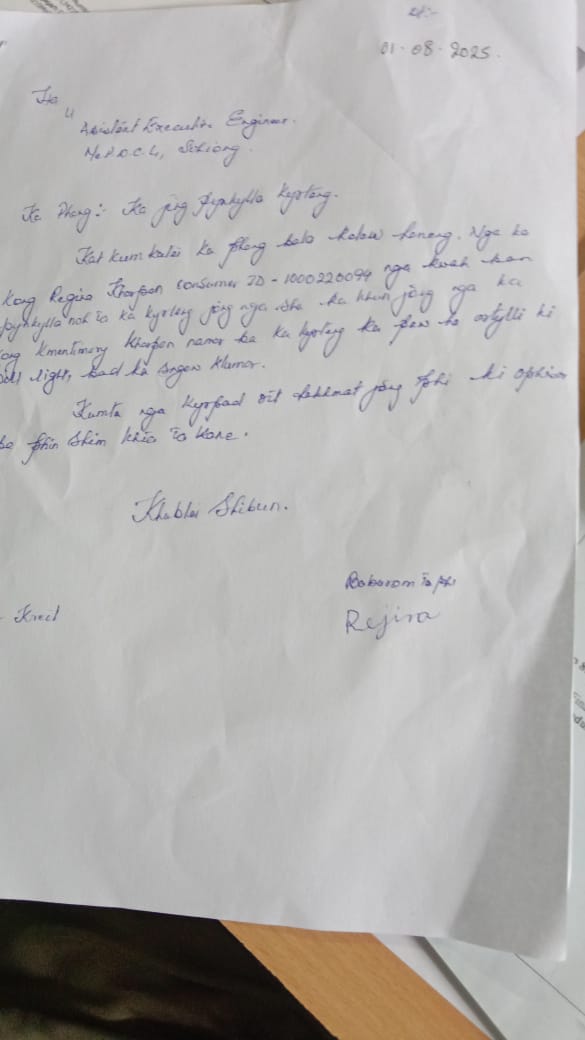 01-08-2025.
To
U
Assistant Executive Engineer.
Me.P.D.C.L, Sohiong.
Ka Phang:- Ka jong pynkylla kyrteng.
Kat kum kalei ka phang kala kdew haneng. Nga ka
Kong Regina Kharpan Consumer ID - 1000220099 nga kwah ban
pynkylla noh ïa ka kyrteng jong nga sha ka khun jong nga ka
Kmentimary Kharpan namar ba ka kyrteng ka paw ha artylli ki
light, bad ka sngew klumar.
Kumta nga kyrpad jong phi ki ophisar
ba phin shim khia ïa kane.
Khublei Shibun.
Baburom ïa phi
Rejina